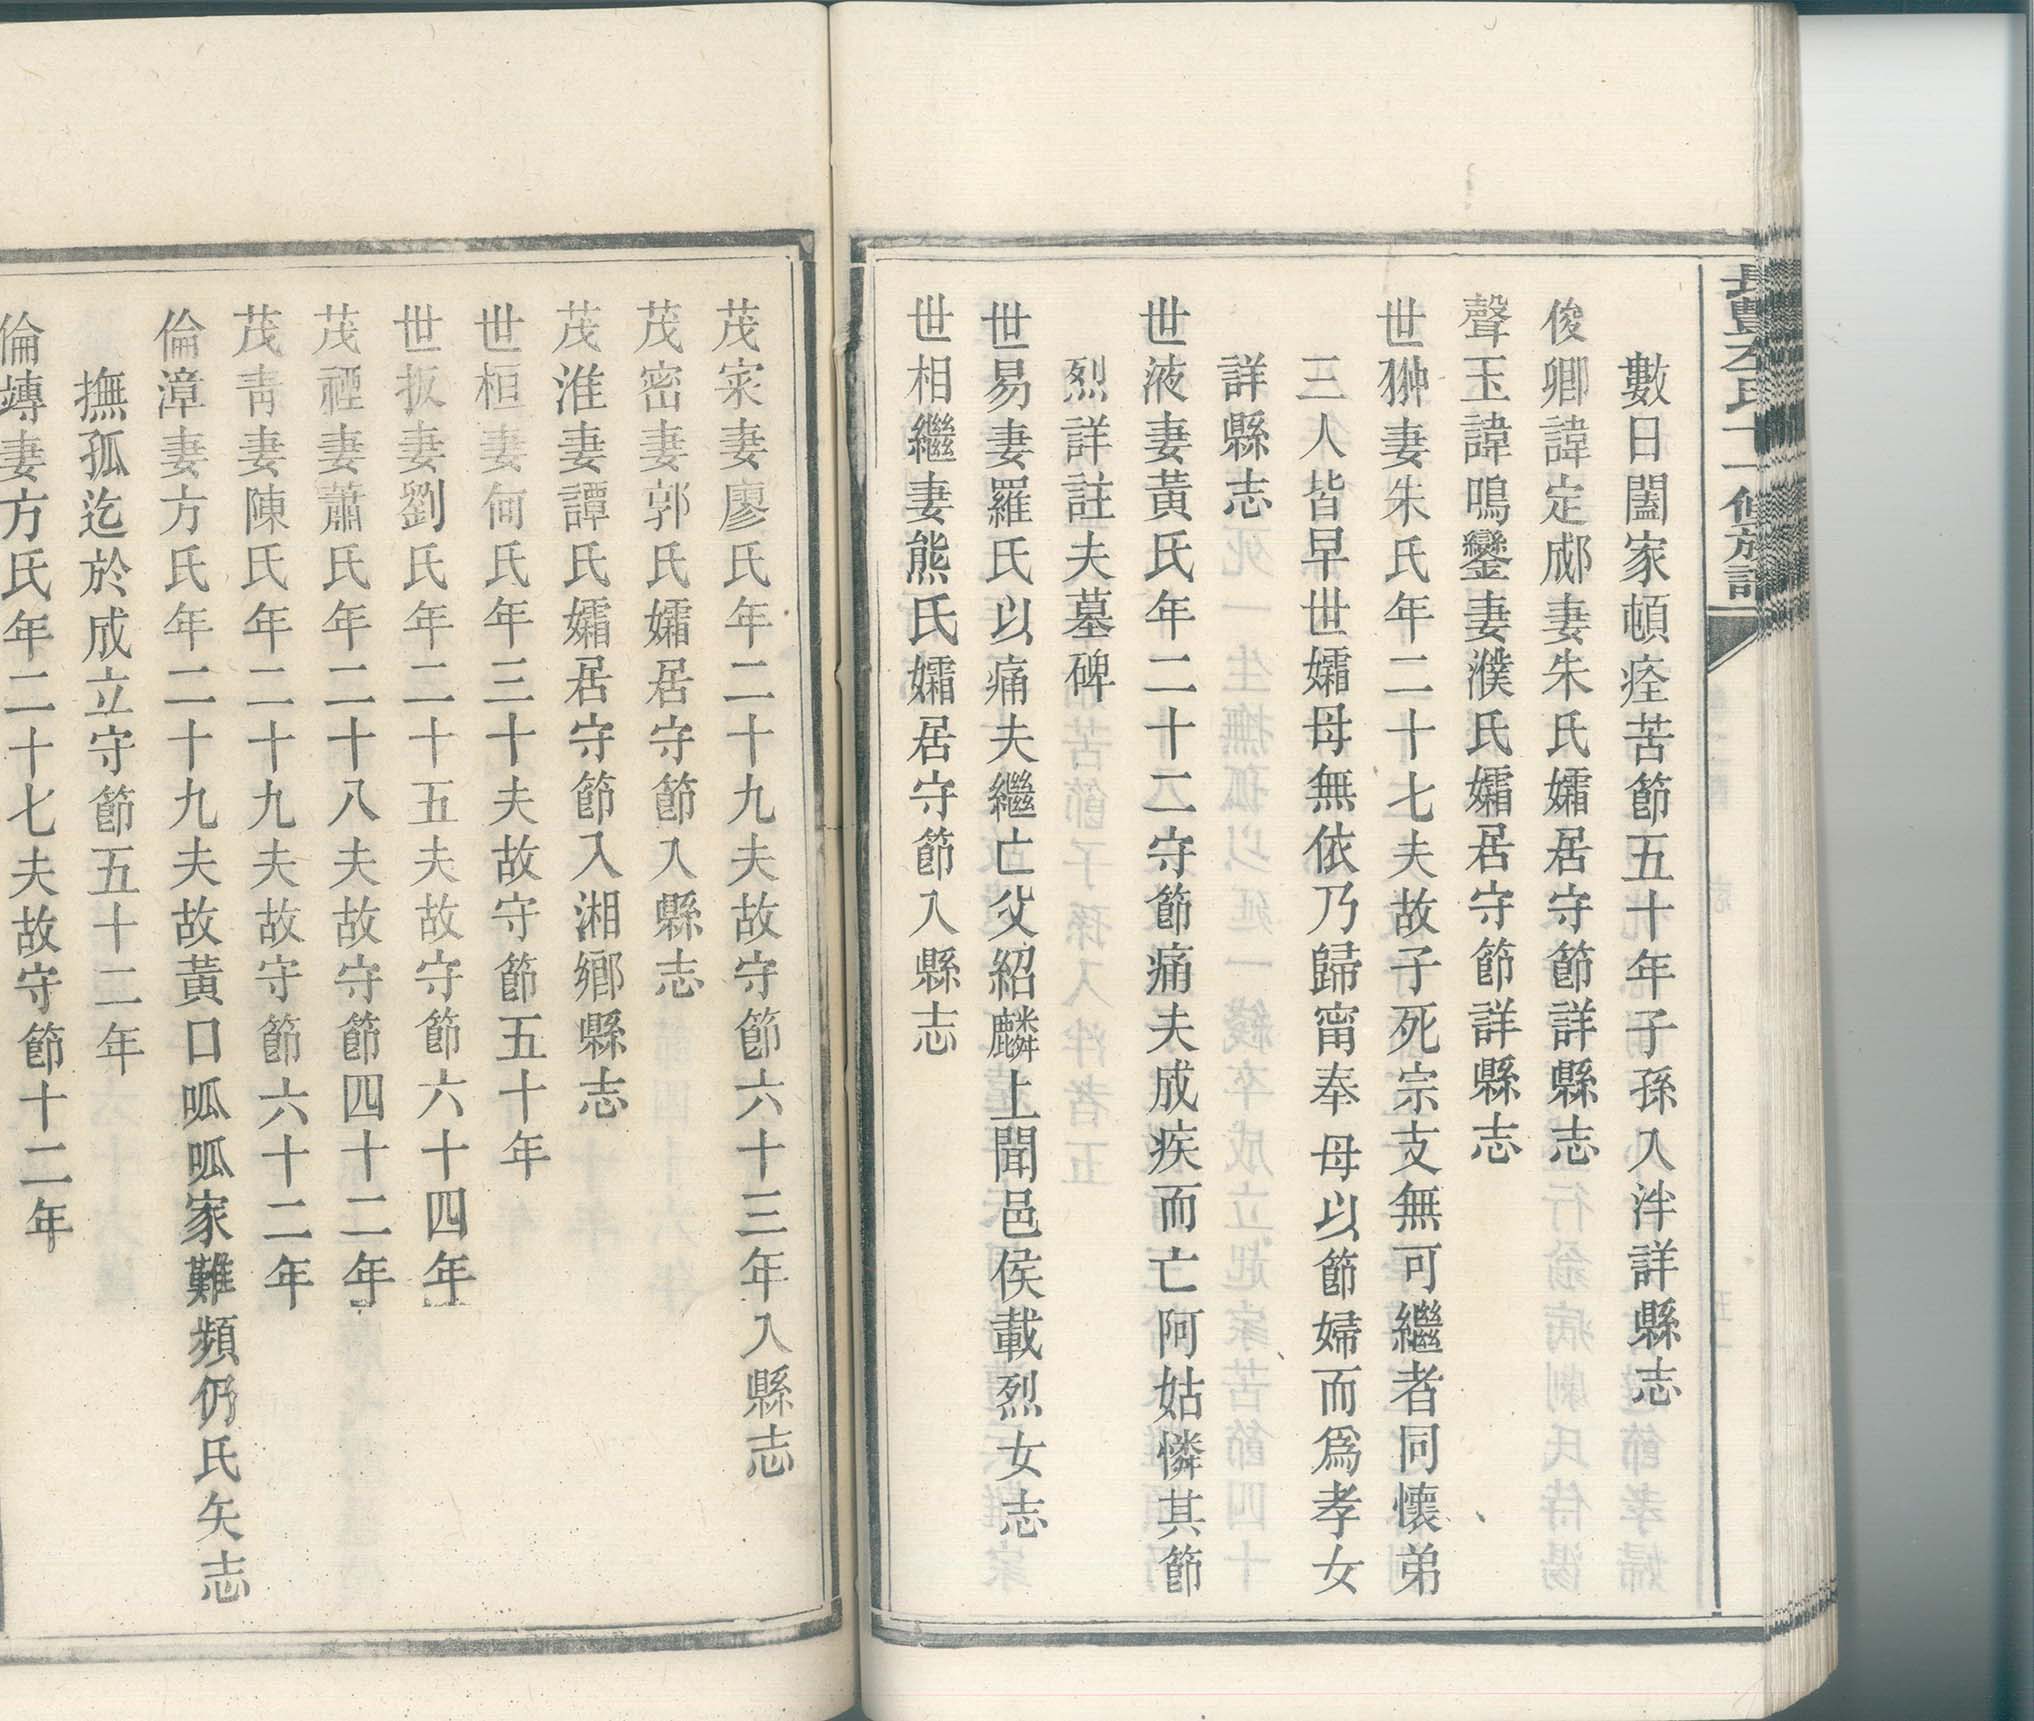 數日闔家頓痊苦節五十年子孫入泮詳縣志
俊卿諱定邴妻朱氏孀居守節詳縣志
聲玉諱鳴鑾妻濮氏孀居守節詳縣志
世翀妻朱氏年二十七夫故子死宗支無可繼者同懷弟
三人皆早世孀母無依乃歸甯奉母以節婦而爲孝女
詳縣志
世液妻黃氏年二十二守節痛夫成疾而亡阿姑憐其節
烈詳註夫墓碑
世易妻羅氏以痛夫繼亡父紹麟上聞邑侯載烈女志
世相繼妻熊氏孀居守節入縣志
茂寀妻廖氏年二十九夫故守節六十三年入縣志
茂密妻郭氏孀居守節入縣志
茂淮妻譚氏孀居守節入湘鄉縣志
世桓妻何氏年三十夫故守節五十年
世扳妻劉氏年二十五夫故守節六十四年
茂禋妻蕭氏年二十八夫故守節四十二年
茂靑妻陳氏年二十九夫故守節六十二年
倫漳妻方氏年二十九夫故黃口呱呱家難頻仍氏矢志
撫孤迄於成立守節五十二年
倫塼妻方氏年二十七夫故守節十二年